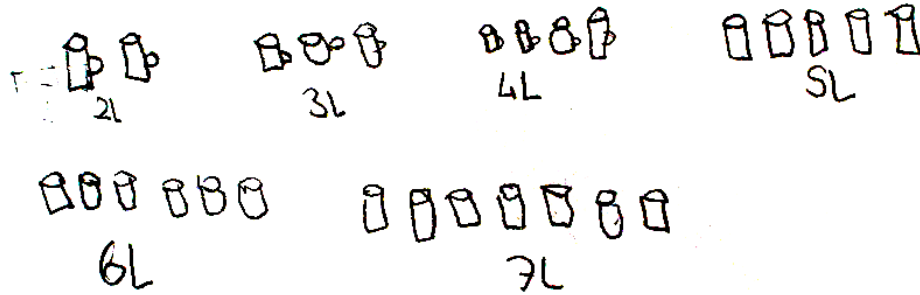 2L 3L 4L 5L
6L 7L